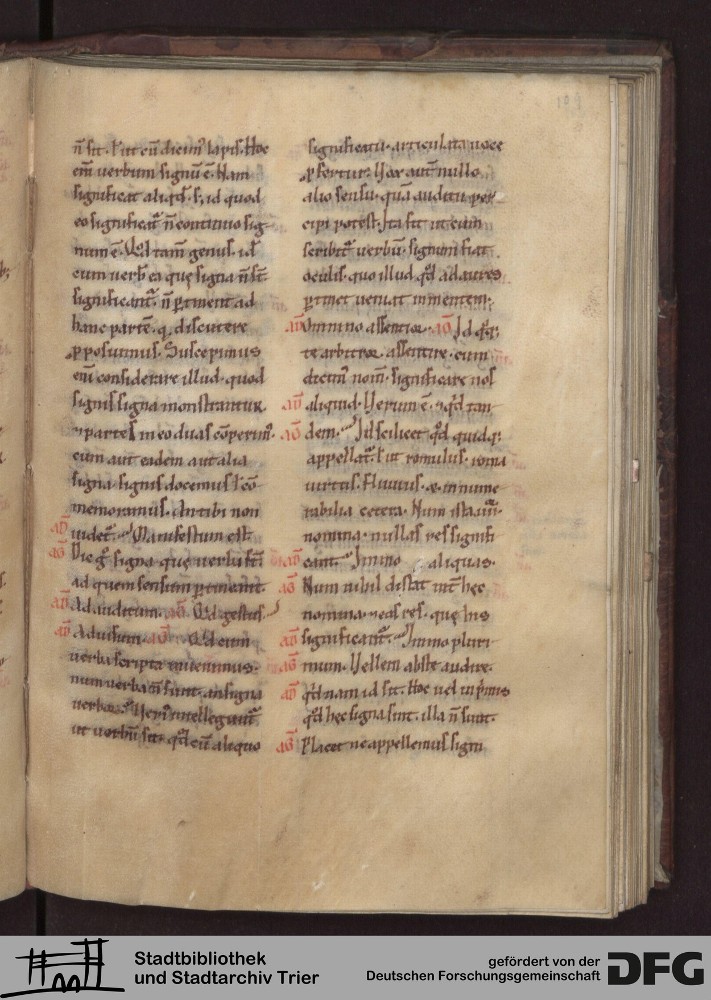 n̄ sit. ł ut cū dicim᷒ lapis. Hoc
eni᷒ verbum signū ē. Nam
significat aliqd. s; id quod
eo significat᷒ n̄ continuo sig-
num ē. Qd tam̄ genus. id
cum verb ea quę signa n̄ st̄
significant᷒. n̄ ꝑtinent ad
hanc partē. q̨ discutere
ꝓposuimus. Suscepimus
eni᷒ considerare illud. quod
signis signa monstrantur.
⁊ partes in eo duas cōperim᷒.
cum aut eadem aut alia
signa signis docemus. ł cō
memoramus. An tibi non
videt᷒. Manifestum est.
Dic g signa que verba st̄
ad quem sensum ꝑtineant.
Ad auditum. Qd gestus
Ad visum. Qd cum
verba scripta invenimus.
num verba n̄ sunt. an signa
verborum veri᷒ intelleguntur
ut verbū sit. qd cū aliquo
significatu. articulata voce
ꝓfertur. Vox aut nullo
alio sensu. quā auditu per
cipi potest. Ita fit ut cum
scribit᷒ verbū. signum fiat
oculis. quo illud qd ad aures
ꝑtinet veniat in mentem.
Omnino assentior. Id q̨q;
te arbitror assentire. cum
dicim᷒ nom̄. significare nos
aliquid. Verum ē. qd tan
dem. Id scilicet qd quidq;
appellat᷒. ł ut romulus. roma
virtus. Fluvius. ⁊ innume
rabilia cetera. Num ista.iiii.
nomina. nullas res signifi
cant. Immo aliquas.
Num nihil distat int᷒ hec
nomina. ⁊ eas res. que his
significant᷒. Immo pluri
mum. Vellem abs te audire.
qdnam id sit. Hoc vel in primis
qd hec signa sint. illa n̄ sunt.
Placet ne appellemus signi
Stadtbibliothek
und Stadtarchiv Trier
gefördert von der
Deutschen Forschungsgemeinschaft
DFG